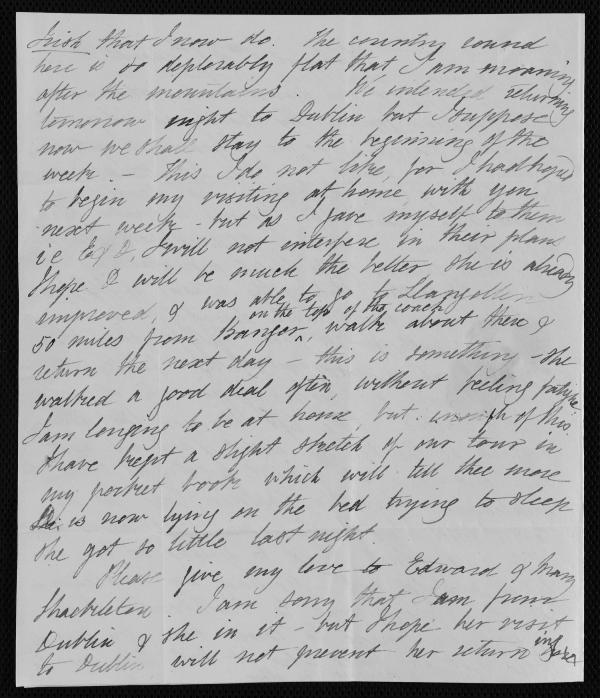 Irish that I now do. The country round
here is so deplorably flat that I am moaning
after the mountains. We intended returning
tomorrow night to Dublin but I suppose
now we shall stay to the beginning of the
week. – This I do not like, for I had hoped
to begin my visiting at home, with you
next week – but as I gave myself to them
i e E & D, I will not interfere in their plans
I hope D will be much the better she is already
improved, & was able to go to Llangollen
on the top of the coach
50 miles from Bangor, ^ walk about there &
return the next day – this is something – she
walked a good deal often, without feeling fatigue.
I am longing to be at home, but enough of this.
I have kept a slight sketch of our tour in
my pocket book which will tell thee more
is now lying on the bed trying to sleep
she got so little last night.
Please give my love to Edward & Mary
Shackleton I am sorry that I am from
Dublin & she in it – but I hope her visit
to Dublin will not prevent her return